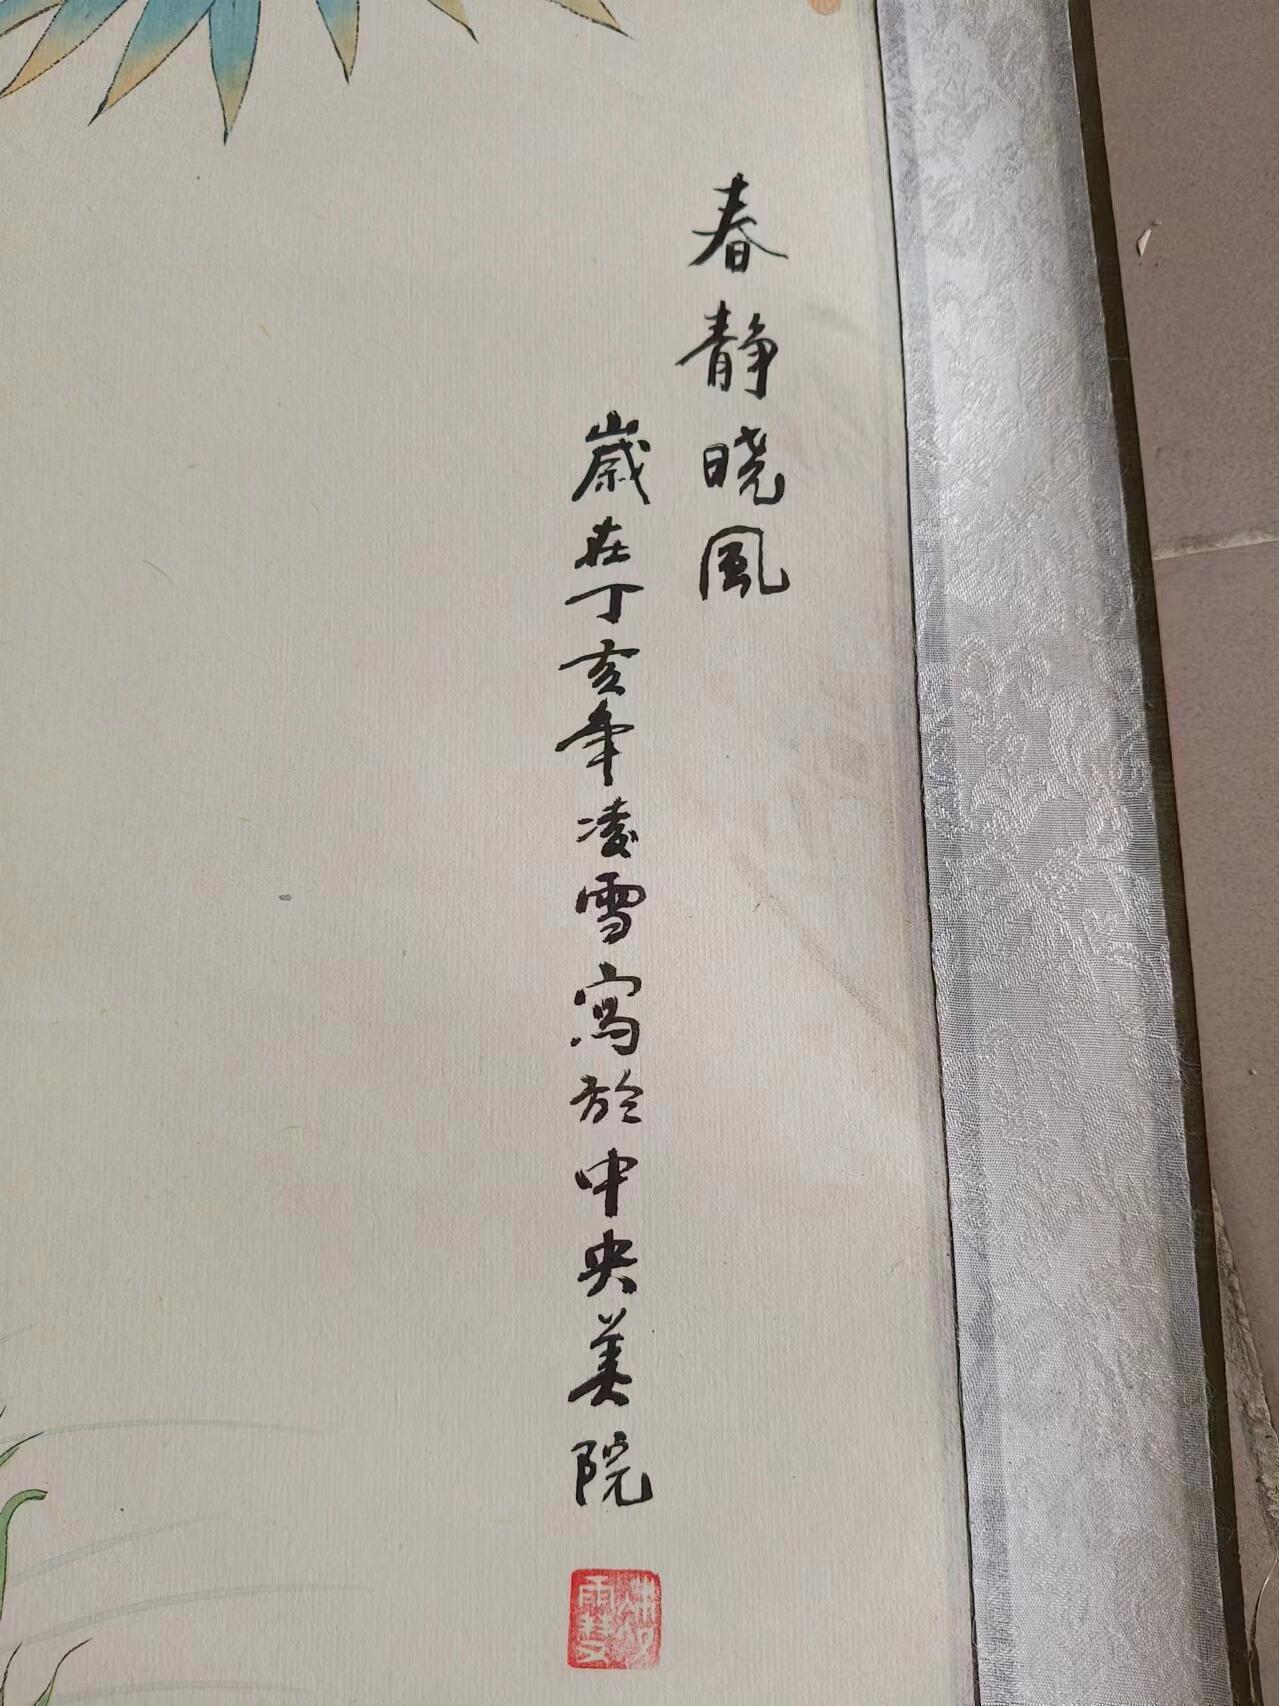 春静晓風
歲在丁亥年凌雪寫於中央美院